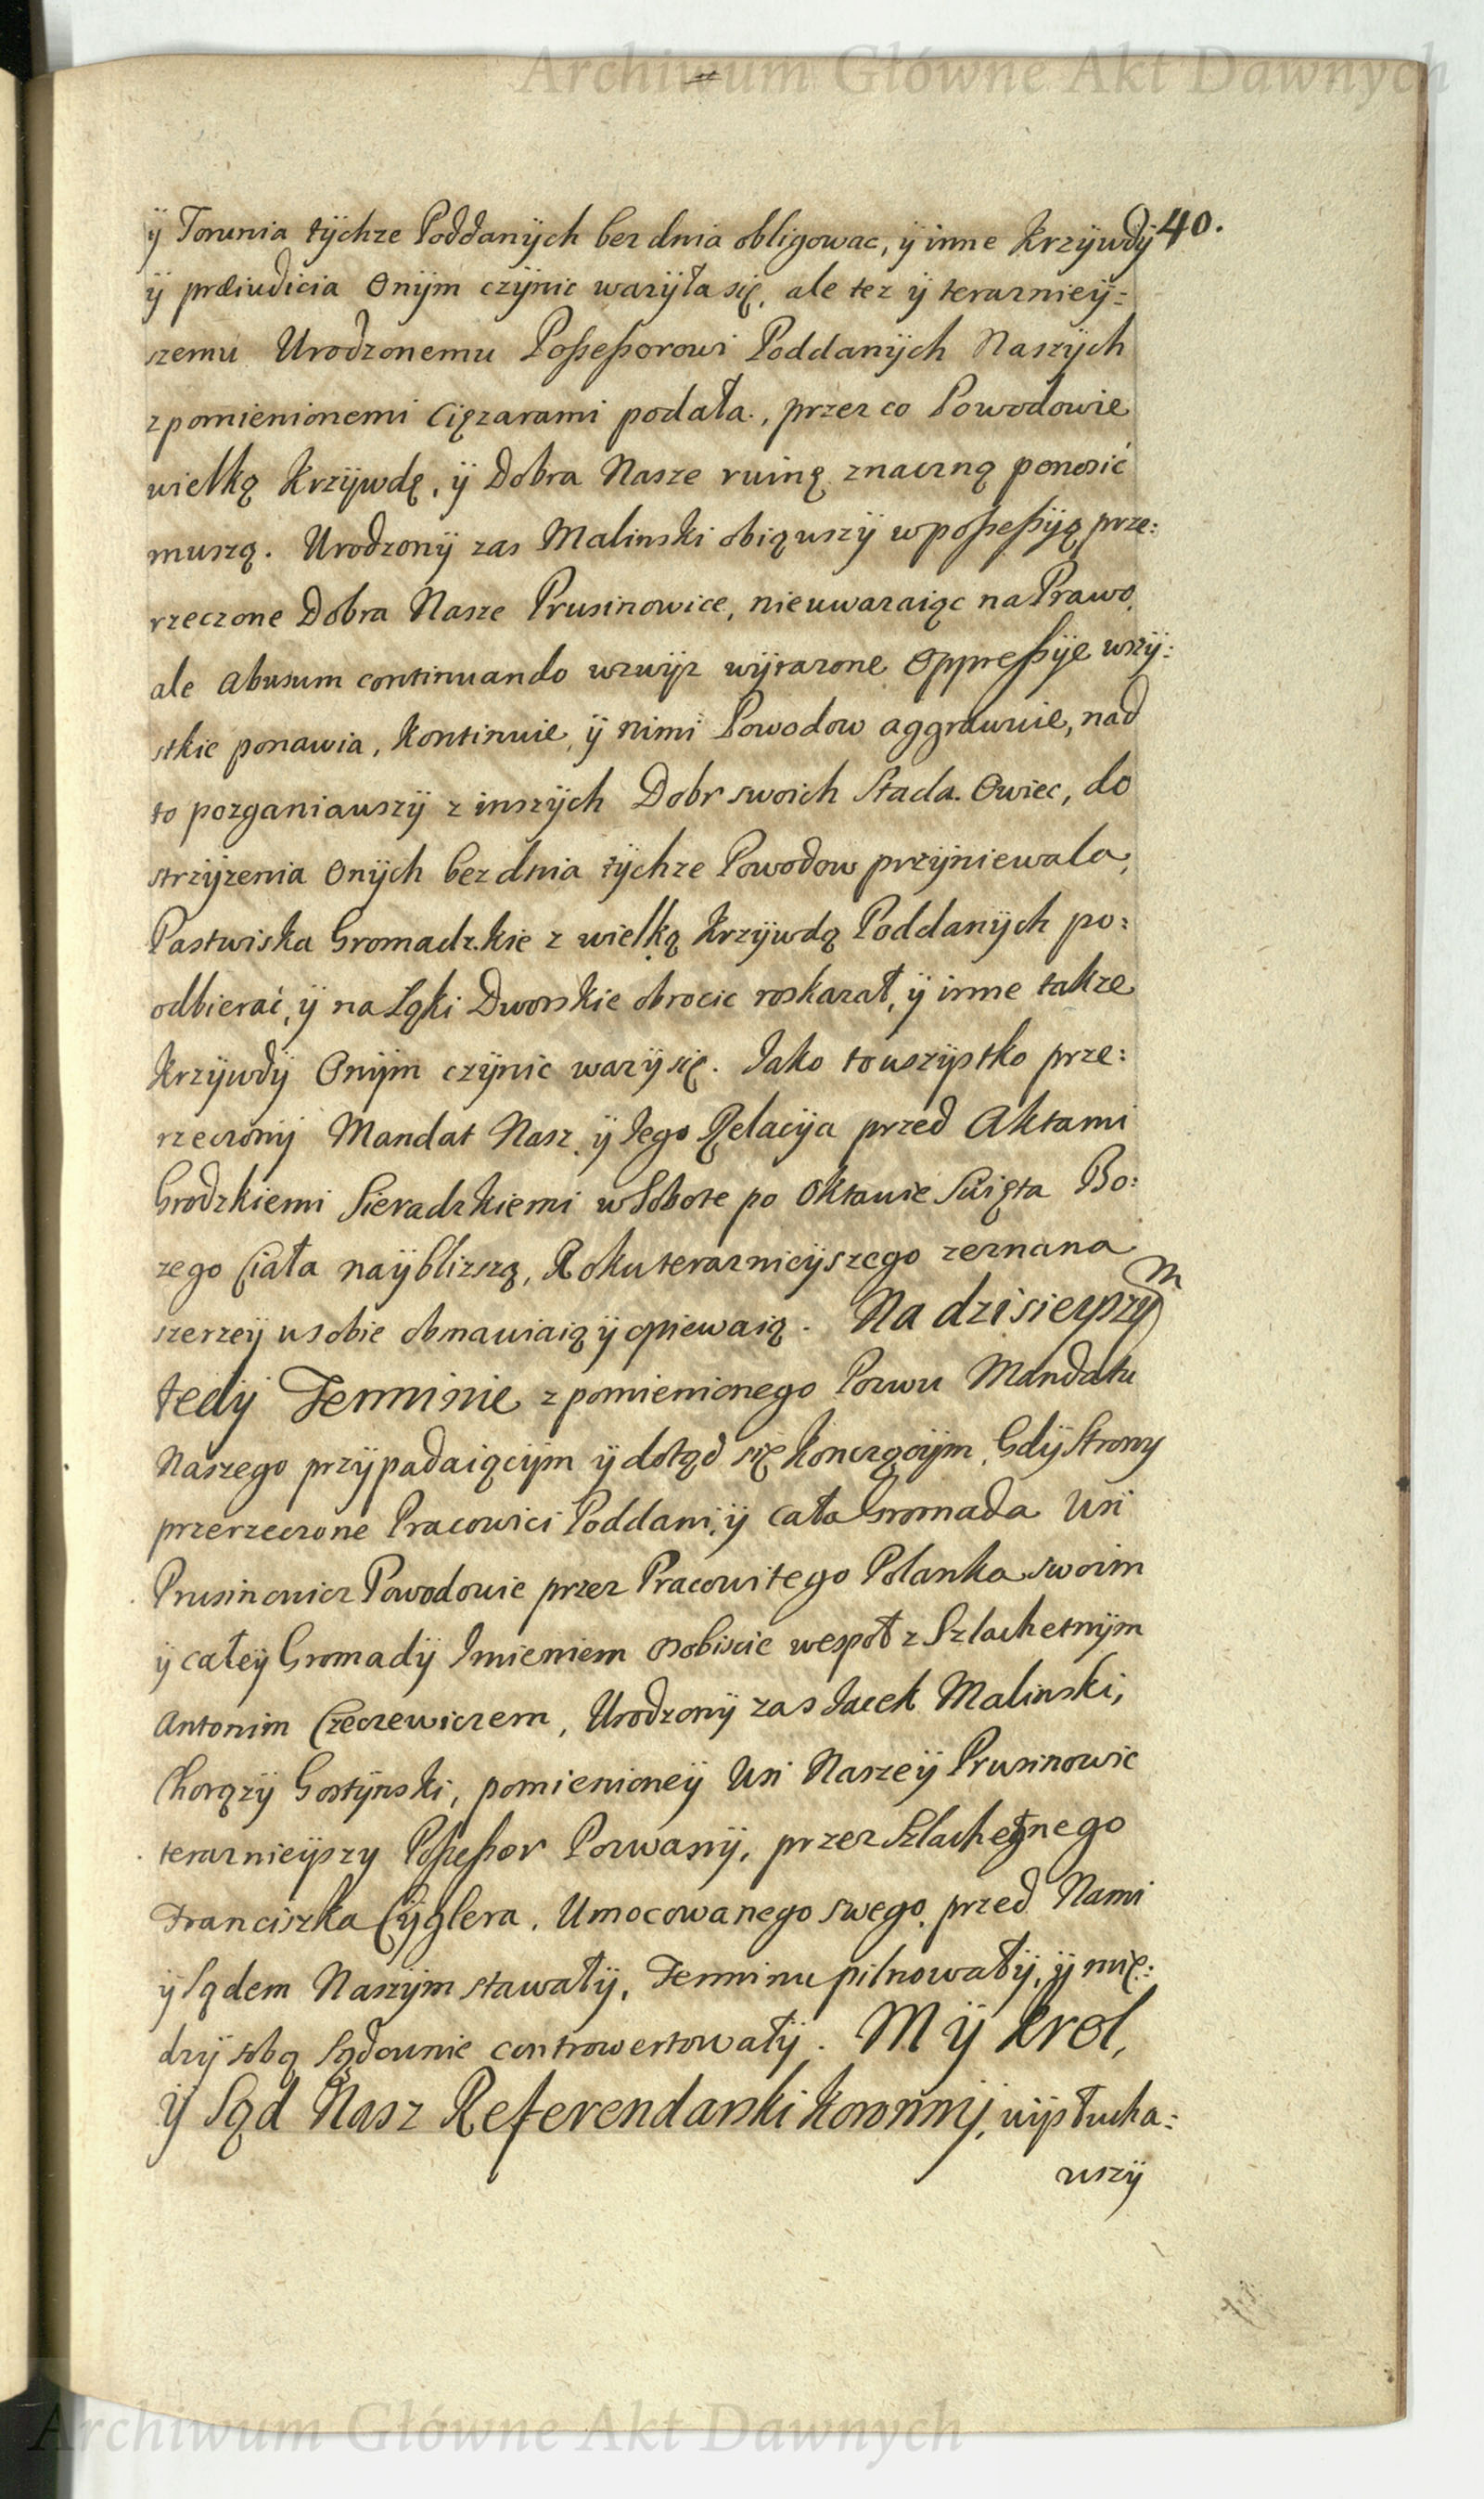 Archiwum Główne Akt Dawnych
40.
ÿ Torunia tÿchze Poddanÿch bez dnia obligowac, ÿ inne Krzÿwdÿ
ÿ præiudicia Onÿm czÿnic wazÿła się, ale tez ÿ terazniey:
szemu Urodzonemu Poßeßorowi Poddanÿch Naszÿch
z pomienionemi Cięzarami podała, przez co Powodowie
wielką Krzÿwdę, ÿ Dobra Nasze ruinę znaczną ponosić
muszą. Urodzonÿ zas Malinski obiąwszÿ w poßeßÿą prze:
rzeczone Dobra Nasze Prusinowice, nieuwazaiąc na Prawo,
ale abusum continuando wzwÿz wÿrazone Oppreßÿe wszÿ:
stkie ponawia, kontinuie, ÿ nimi Powodow aggrawuie, nad
to pozganiawszÿ z inszÿch Dobr swoich Stada Owiec, do
strzÿzenia Onÿch bez dnia tÿchze Powodow przÿniewala,
Pastwiska Gromadzkie z wielką Krzÿwdą Poddanÿch po:
odbierać, ÿ na Łąki Dworskie obrocic roskazał, ÿ inne takze
Krzÿwdÿ Onÿm czÿnic wazÿ się. Iako to wszÿstko prze:
rzeczonÿ Mandat Nasz, ÿ Iego Relacÿa przed Aktami
Grodzkiemi Sieradzkiemi w Sobote po Oktawie Swięta Bo:
zego Ciała naÿblizszą, Roku teraznieÿszego zeznana
szerzeÿ w sobie obmawiaią ÿ opiewaią. Na dzisieyszym
tedÿ Terminie z pomienionego Pozwu Mandatu
Naszego przÿpadaiącÿm ÿ dotąd się konczącÿm, Gdÿ Strony
przerzeczone Pracowici Poddani, ÿ cała Gromada Wsi
Prusinowicz Powodowie przez Pracowitego Polanka swoim
ÿ całeÿ Gromadÿ Imieniem osobiscie wespoł z Szlachetnÿm
Antonim Czeczewiczem, Urodzonÿ zas Iacek Malinski,
Chorązÿ Gostÿnski, pomienioneÿ Wsi Naszeÿ Prusinowic
teraznieÿszy Poßeßor Pozwanÿ, przez Szlachetnego
Franciszka Cÿglera, Umocowanego swego, przed Nami
ÿ Sądem Naszÿm stawałÿ, Terminu pilnowałÿ, ÿ mię:
dzÿ sobą Sądownie controwertowałÿ. Mÿ Krol,
ÿ Sąd Nasz Referendarski Koronnÿ, wÿsłucha:
wszÿ
Archiwum Główne Akt Dawnych